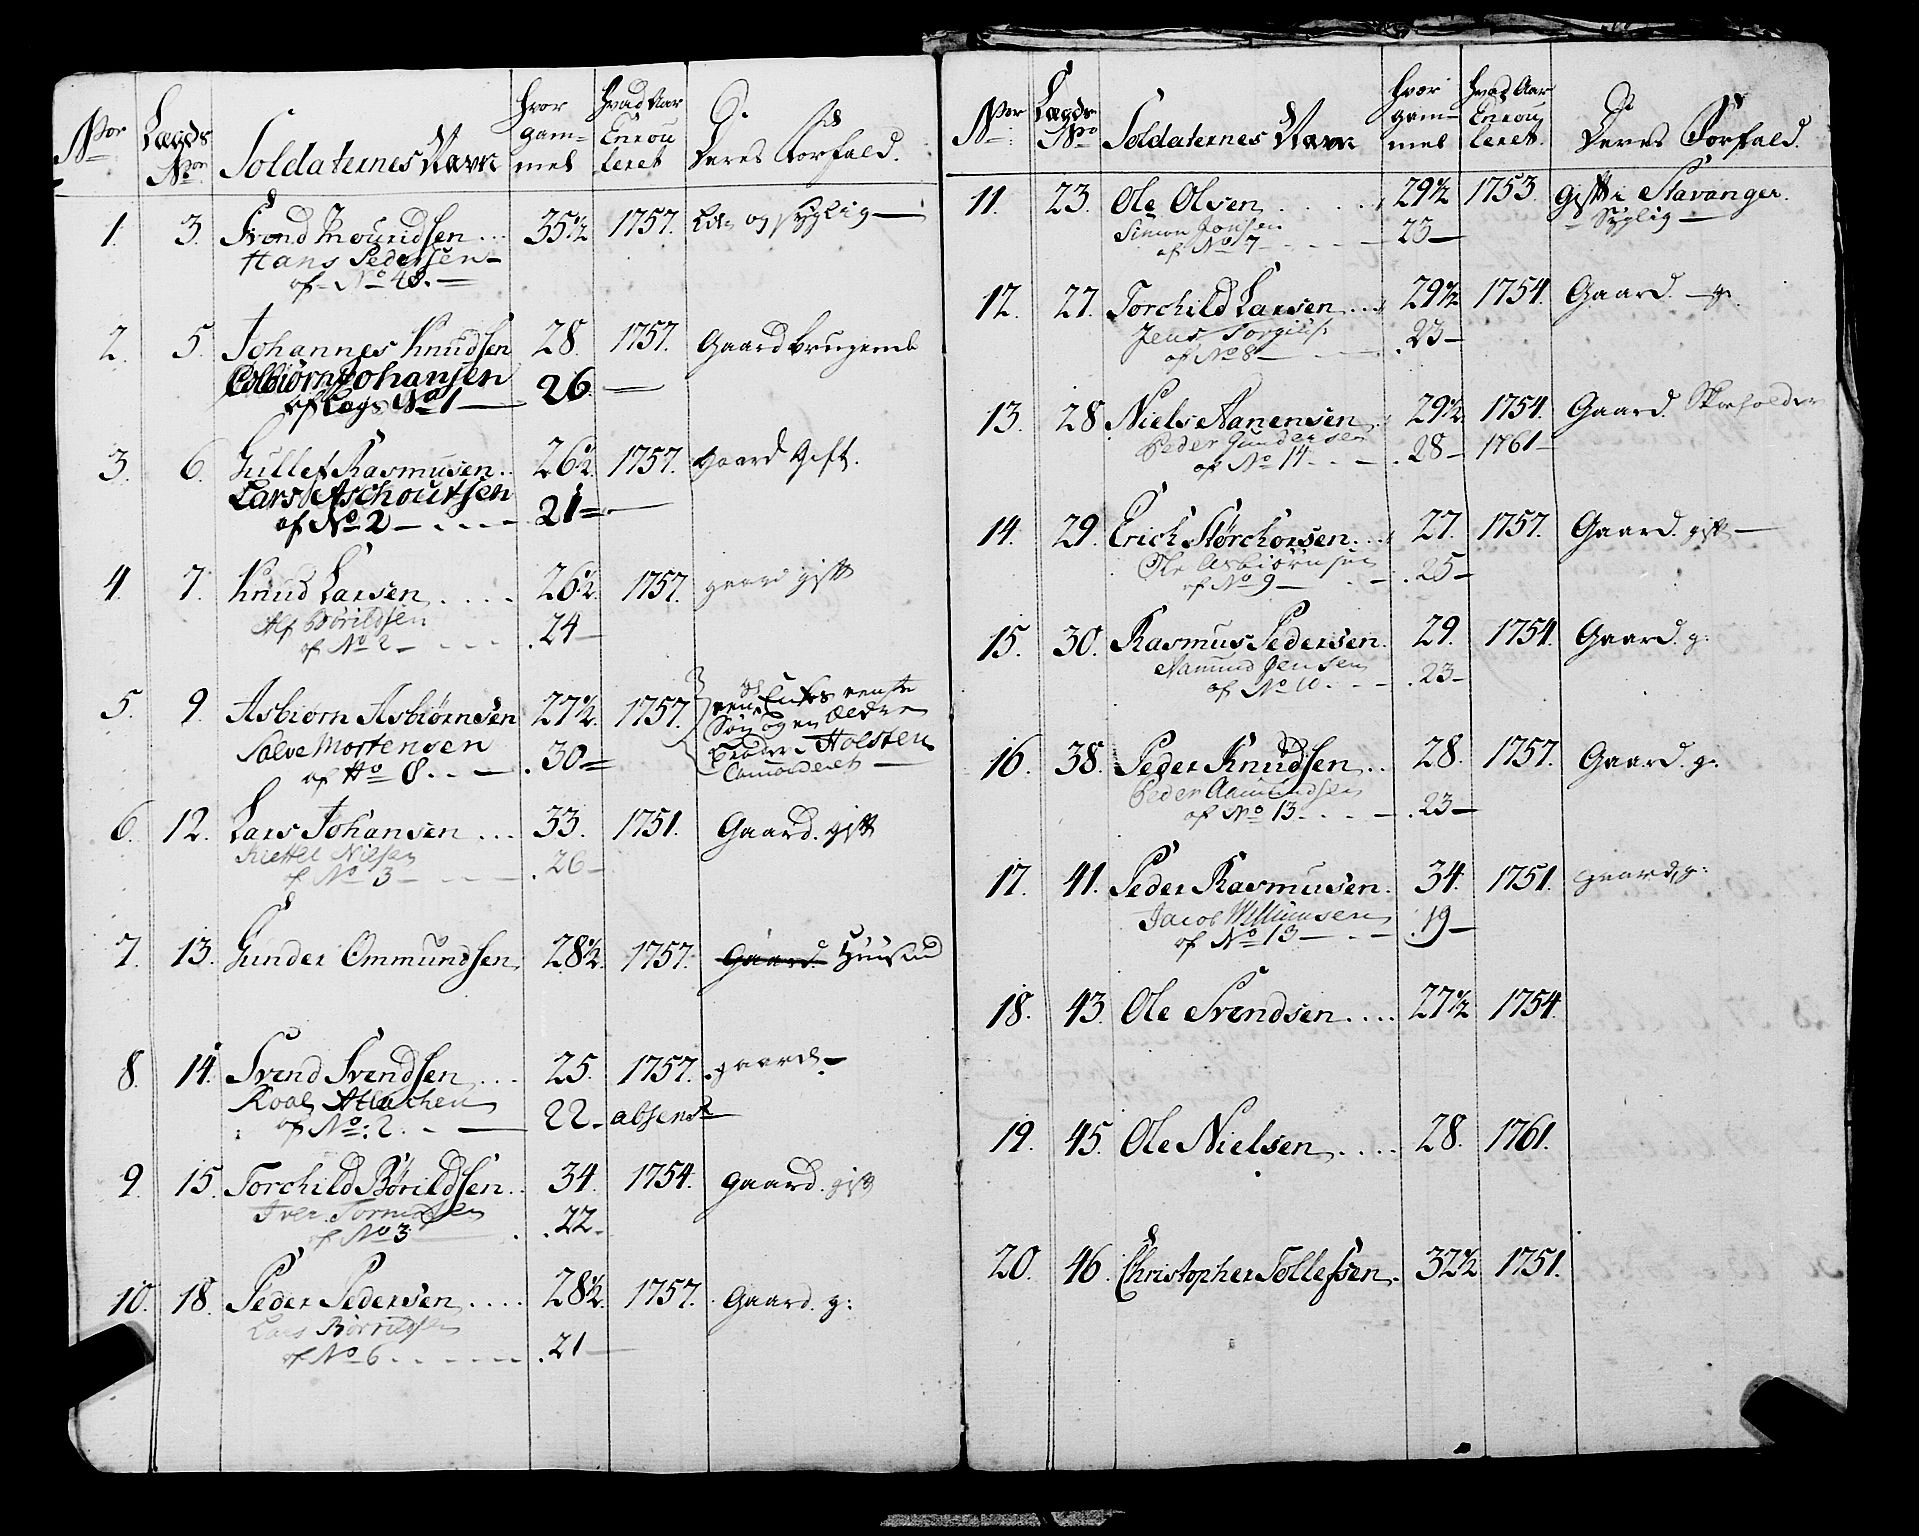 Nor Lægds Nor Soldaternes Navn hvor gam- mel hvad Aar Enrou leret Deres Forfald.
1. 3. Svend Mouridsen ... 35½ 1757. Lide og syglig
Hans Pedersen
af No 48.
2. 5. Johannes Knudsen 28. 1757. Gaardbrugende
Esbiørn Johansen 26.
af Lægs No 1
3. 6. Gullef Rasmusen .. 26½ 1757. gaard Gift.
Lars Aschoutsen 21
af No 2
4. 7. Knud Larsen .... 26½ 1757. gaard gift
Alf Børildsen 24
af No 2
5. 9. Asbiørn Asbiørnsen 27½ 1757. een Enkes eeneste
Søn og en Ældre
Broder Holsten
Comanderet
Salve Mortensen 30
af No 8.
6. 12. Lars Johansen ... 33. 1751. Gaard. gift
Kiettel Nielsen 26
af No 3
7. 13. Gunder Ommundsen 28½ 1757. Gaard Huusmd
8. 14. Svend Svendsen ... 25. 1757. gaard
Roal 22 absent
af No: 2.
9. 15. Torchild Børildsen .. 34. 1754. Gaard. gift
Iver 22
af No 3
10. 18. Peder Pedersen .... 28½ 1757. Gaard. g:
Lars Børrildsen 21
af No 6
Nor Lægds No Soldaternes Navn hvor gam- mel hvad Aar Enrou leret. Deres Forfald.
11. 23. Ole Olsen 29½ 1753. Gift i Stavanger.
Syglig
Simon Jonsen 23
af No 7
12. 27. Torchild Larsen ... 29½ 1754. Gaard. g.
Jens Torgils: 23
af No 8
13. 28 Niels Aanensen 29½ 1754. Gaard. Skafholder
Peder Gundersen 28 1761
af No 14
14. 29. Erich Størchorsen ... 27. 1757. Gaard. gift
Ole Asbiørnsen 25
af No 9
15. 30. Rasmus Pedersen. 29. 1754. Gaard. g:
Aamund Jensen 23
af No 10.
16. 38. Peder Knudsen .. 28. 1757. Gaard. g:
Peder Aamundsen 23
af No 13
17. 41. Peder Rasmusen. 34. 1751. gaard, g:
Jacob Willumsen 19
af No 13
18. 43. Ole Svendsen .... 27½ 1754.
19. 45. Ole Nielsen .... 28. 1761.
20. 46. Christopher Tollefsen. 32½ 1751.